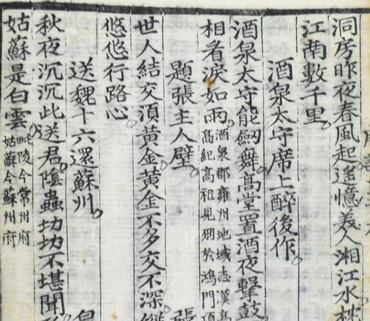 洞房昨夜春風起遥憶美人湘江水枕
江南數千里
酒泉太守席上醉後作
酒泉太守能劒舞高堂置酒夜擊鼓
相看淚如雨
酒泉郡雍州地域志漢
高紀高祖見羽於鴻門項
題張主人壁 張
世人結交湏黃金黃金不多交不深
悠悠行路心
送魏十六還蘇州 皇
秋夜沉沉此送君陰蟲切切不堪聞
姑蘇是白雲
毗陵今常州府
姑蘇今蘇州府